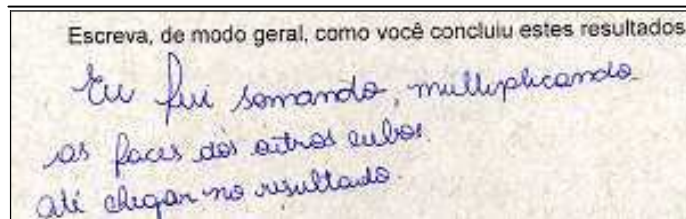 Escreva, de modo geral, como você concluiu estes resultados
Eu fui somando, multiplicando
as faces dos outros cubos
até chegar no resultado.